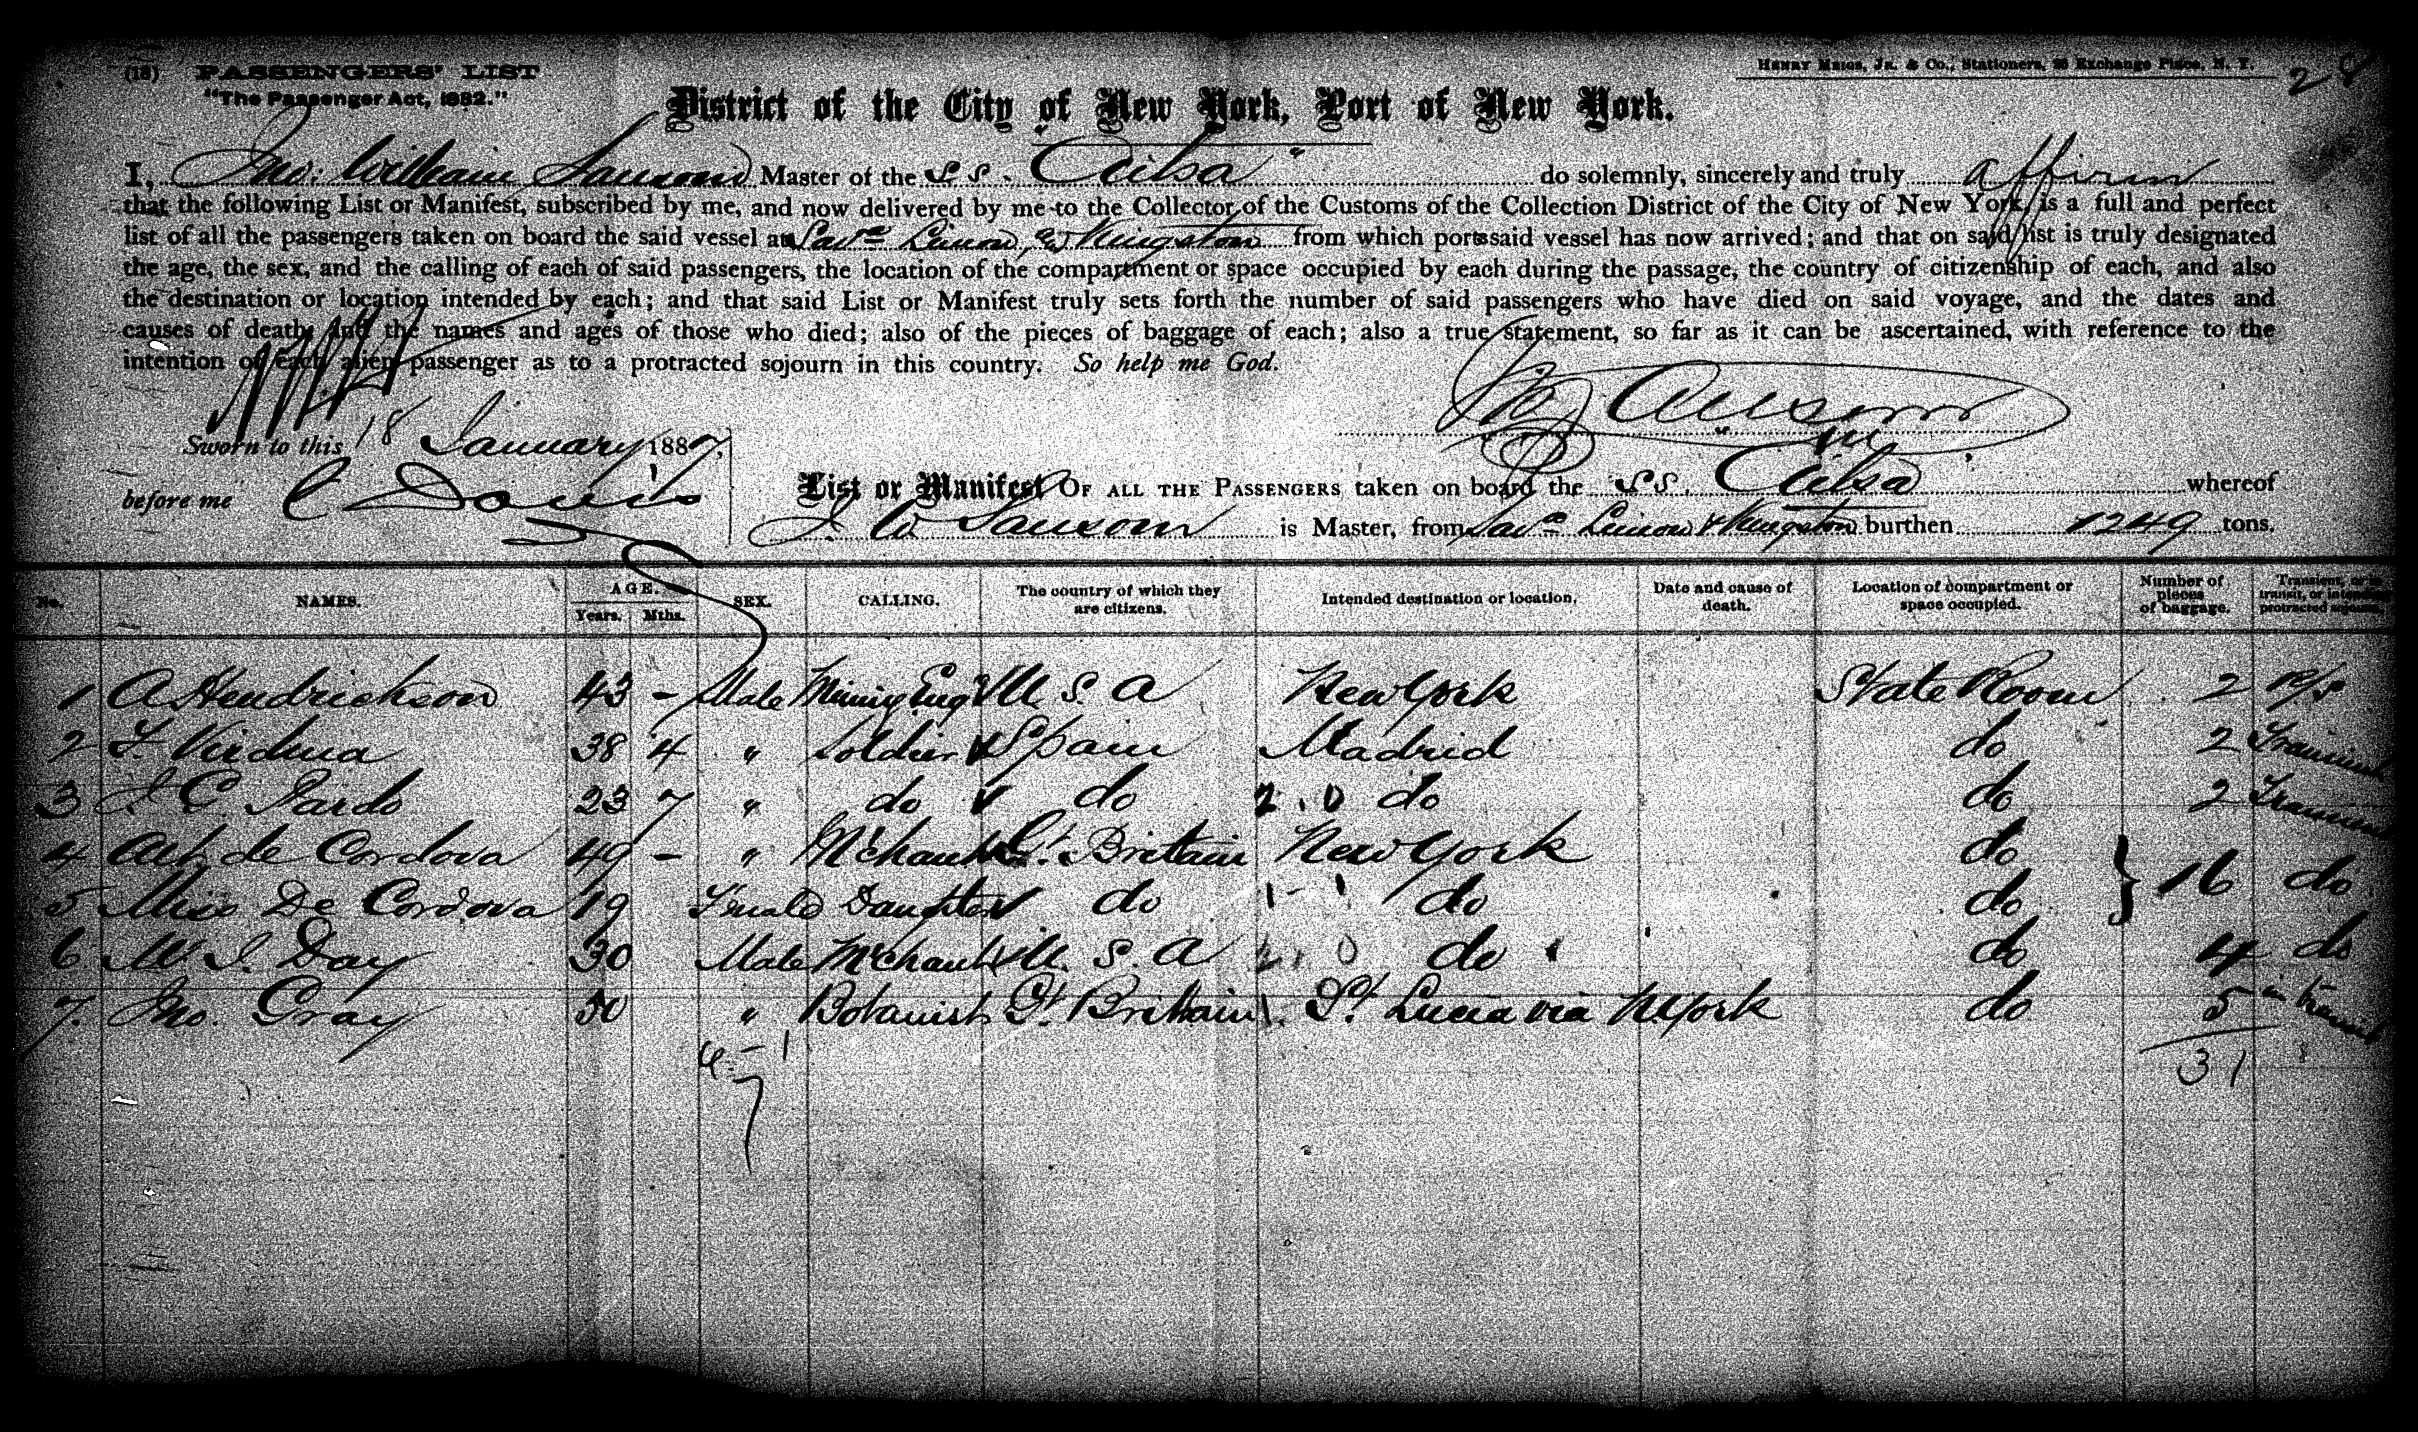 (18) PASSENGERS' LIST
"The Passenger Act, 1882."
HENRY MEIGS, JR. & CO., Stationers, Exchange Place, N. Y.
28
District of the City of New York, Port of New York.
I, Jno. William Sansom Master of the S S. Ailsa do solemnly, sincerely and truly affirm
that the following List or Manifest, subscribed by me, and now delivered by me to the Collector of the Customs of the Collection District of the City of New York, is a full and perfect
list of all the passengers taken on board the said vessel at Sava Limon & Kingston from which ports said vessel has now arrived; and that on said list is truly designated
the age, the sex, and the calling of each of said passengers, the location of the compartment or space occupied by each during the passage, the country of citizenship of each, and also
the destination or location intended by each; and that said List or Manifest truly sets forth the number of said passengers who have died on said voyage, and the dates and
causes of death, and the names and ages of those who died; also of the pieces of baggage of each; also a true statement, so far as it can be ascertained, with reference to the
intention of each alien passenger as to a protracted sojourn in this country. So help me God.
Sansom
Sworn to this 18 January 1887,
before me
List or Manifest OF ALL THE PASSENGERS taken on board the S S. Ailsa whereof
J W Sansom is Master, from Sava Limon & Kingston burthen 1249 tons.
No. NAMES. AGE. Years. Mths. SEX. CALLING. The country of which they are citizens. Intended destination or location. Date and cause of death. Location of compartment or space occupied. Number of pieces of baggage. Transient, or in transit, or intending protracted sojourn.
1 A Hendrickson 43 - Male Mining Engr U. S. A New York State Room 2
2 F. Virdua 38 4 " Soldier Spain Madrid do 2 Transient
3 J C Pardo 23 7 " do do do do 2 Transient
4 Alt de Cordova 49 - " Mchant Gt. Britain New York do
5 Miss De Cordova 19 Female Daughter do do do } 16 do
6 W. I. Day 30 Male Mchant U. S. A do do 4 do
7. Jno. Gray 50 " Botanist Gt. Britain St Lucia via N York do 5 in transit
6 - 1
7
31